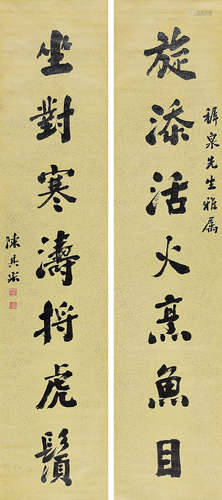 旋添活火烹魚目
泉先生雅屬
坐對寒濤捋虎鬚
陳其